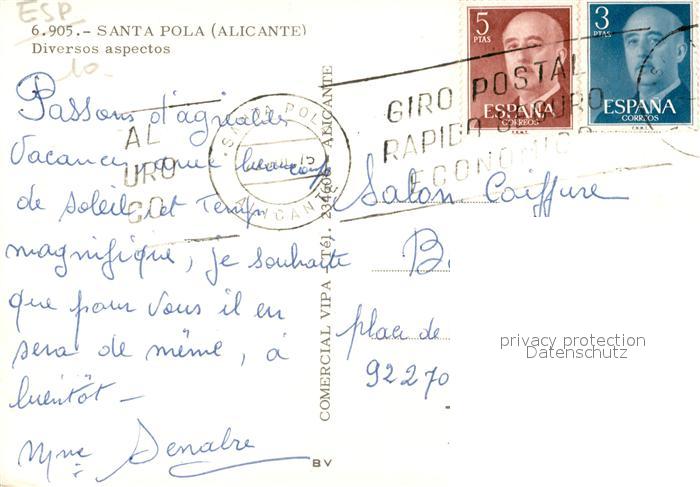 ESP
10.
6.905.- SANTA POLA (ALICANTE)
Diversos aspectos
5
PTAS
ESPAÑA
CORREOS
3
PTAS
ESPAÑA
CORREOS
GIRO POSTAL
RAPIDO SEGURO
ECONOMICO
AL
URO
CO
SANTA POLA
ALICANTE
Passons d'agréables
vacances avec beaucoup
de soleil et Temps
magnifique, je souhaite
que pour vous il en
sera de même, à
bientôt -
Mme Senabre
COMERCIAL VIPA - Tél. ALICANTE
BV
Salon Coiffure
B.
place de
92270
privacy protection
Datenschutz